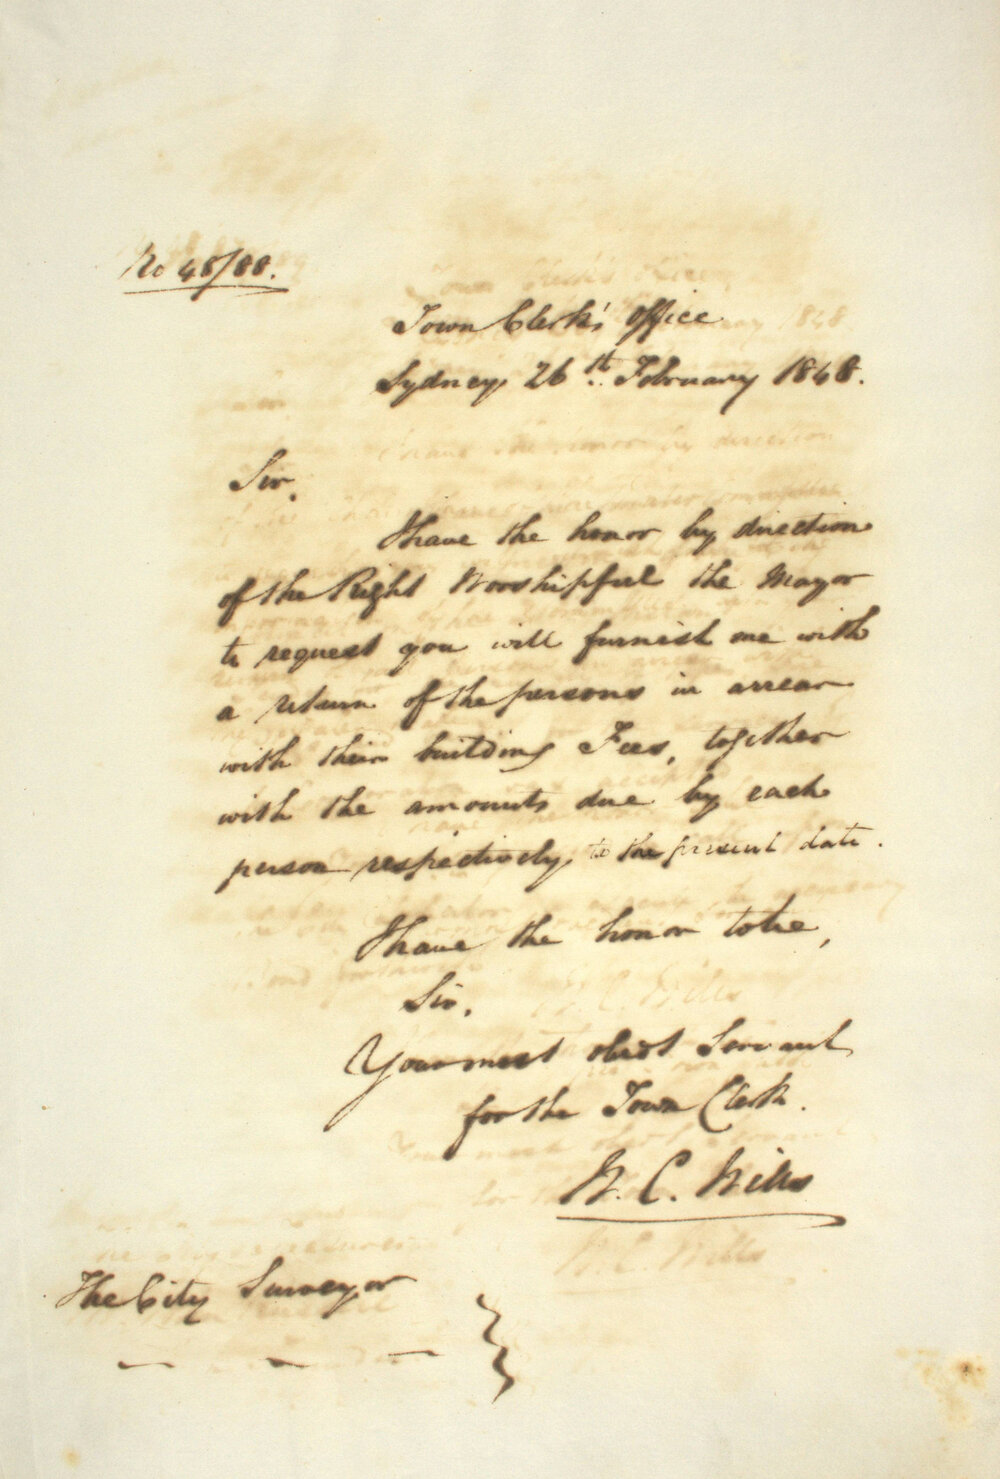 No 48/88.
Town Clerk's Office
Sydney 26th February 1848.
Sir,
I have the honor by direction
of the Right Worshipful the Mayor
to request you will furnish me with
a return of the persons in arrear
with their building Fees, together
with the amounts due by each
person respectively, to the present date.
I have the honor to be,
Sir,
Your most obedt Servant
for the Town Clerk.
W. C. Wills
The City Surveyor